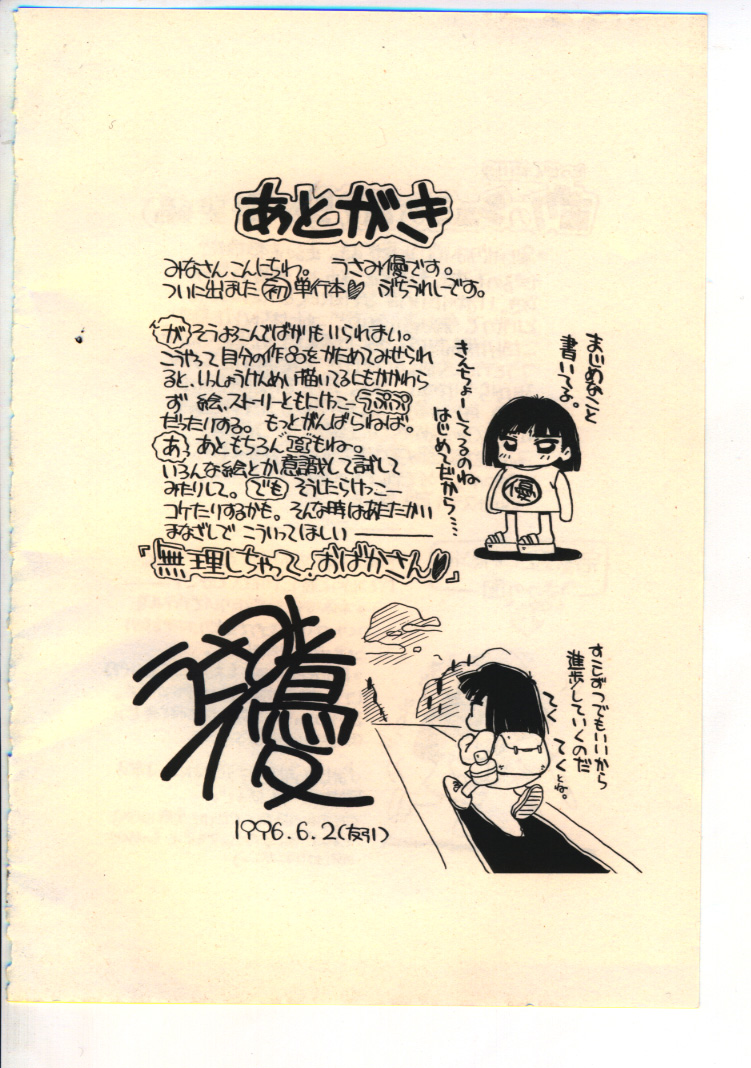 あとがき
みなさんこんにちわ。 うさみ優です。
ついに出ました 初 単行本♡ ぷちうれしーです。
が そうよろこんでばかりもいられまい。
こうやって自分の作品をかためてみせられ
ると、いっしょうけんめい描いてるにもかかわら
ず 絵、ストーリーともにけっこーうぷぷ
だったりする。 もっとがんばらねば。
あっ あともちろん 頂 もね。
いろんな絵とか意識して試して
みたりして。 でも そうしたらけっこー
コケたりするかも。 そんな時はあたたかい
まなざしで こういってほしい ―――
『無理しちゃって、おばかさん♡』
まじめなこと
書いてるよ。
きんちょーしてるのね
はじめてだから……
優
うさみ優
1996.6.2(友引)
すこしずつでもいいから
進歩していくのだ
てく
てくとね。